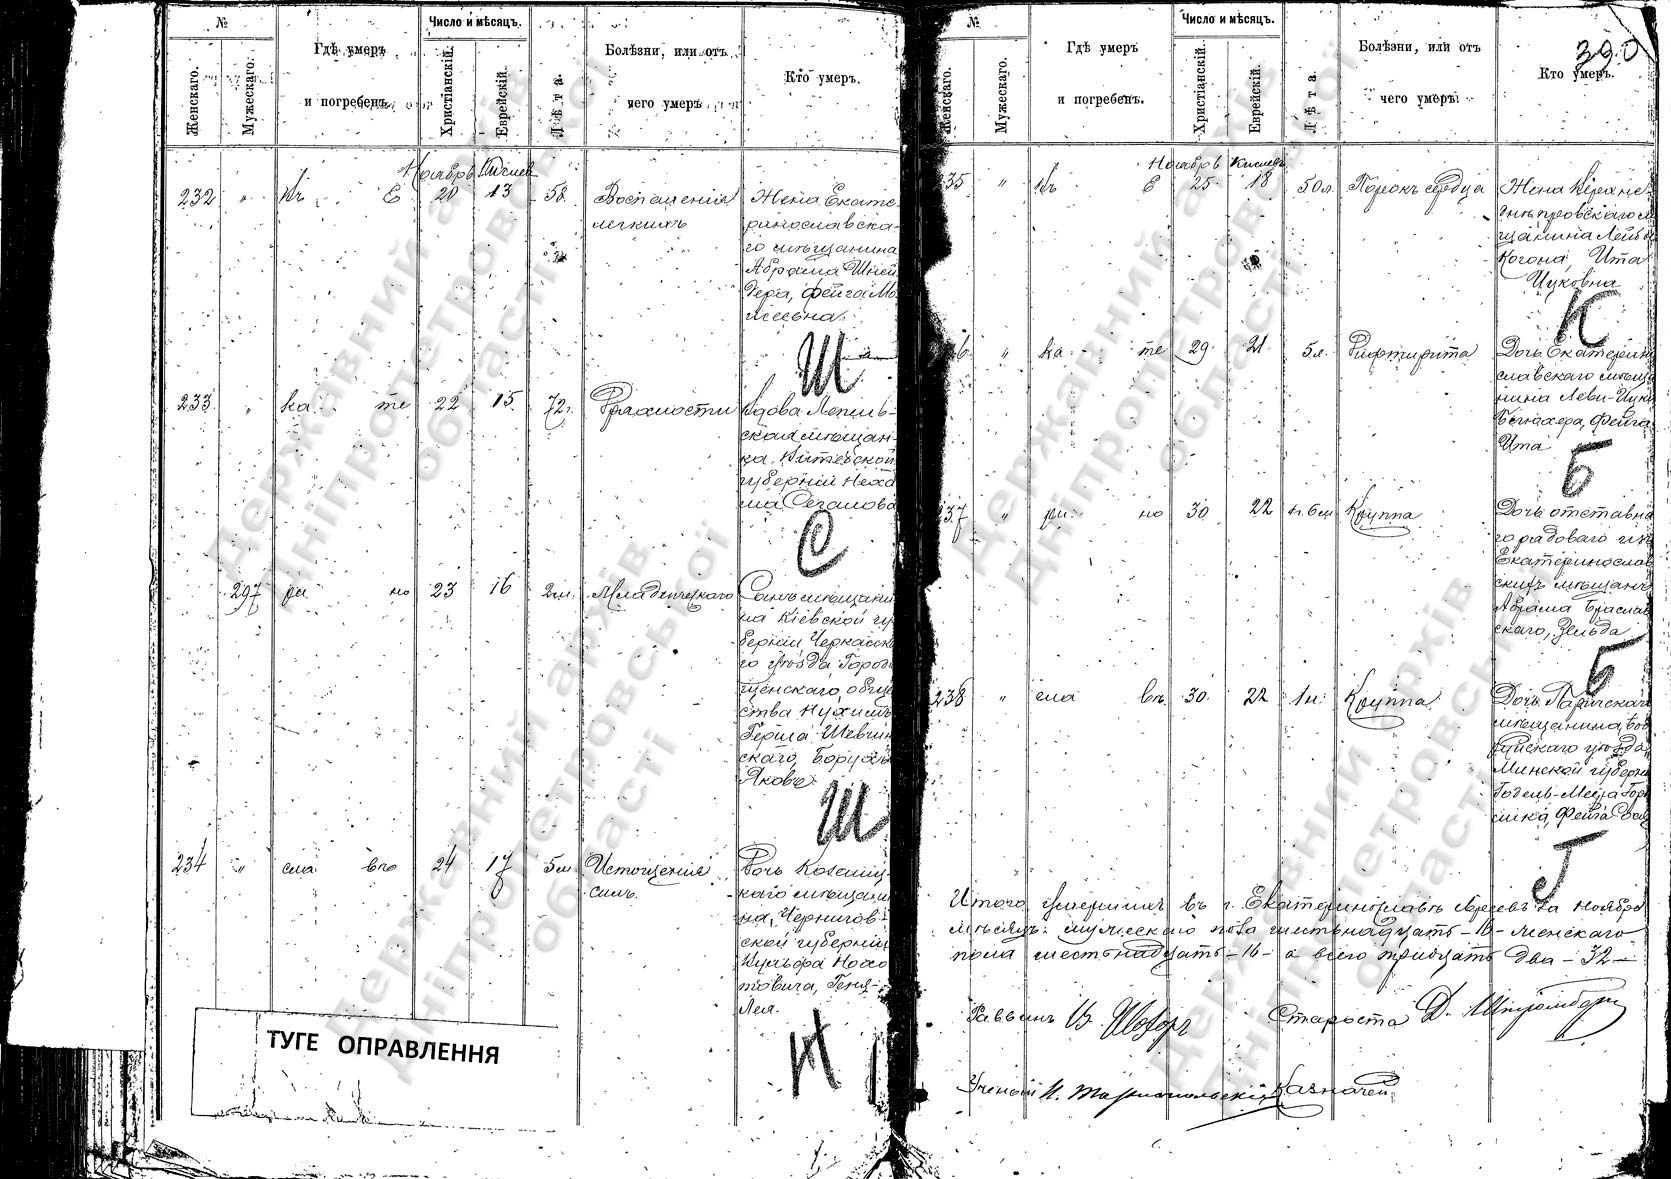 №
Число и мѣсяцъ.
Женскаго.
Мужескаго.
Гдѣ умеръ
и погребенъ.
Христіанскій.
Еврейскій.
Лѣта.
Болѣзни, или отъ
чего умеръ
Кто умеръ.
Ноябрь Кислев
232 " Въ Е 20 13 58 Воспаленія
легкихъ
Жена Екате-
ринославска-
го мѣщанина
Абрама Шней
дера, Фейга Мо
исеевна.
Ш
233 " ка те 22 15 72 г. Дряхлости
Вдова Лепель-
ская мѣщан-
ка Витебской
губерніи Неха
ма
С
297 ри но 23 16 2 м. Младенческаго
Сынъ мѣщани
на Кіевской гу
берніи, Черкасска
го уѣзда Город
щенскаго, обще
ства Нухимъ
Герша Шевчин
скаго, Борухъ
Яковъ
Ш
234 " сла вѣ 24 17 5 м. Истощенія
силъ.
Дочь Козелец-
каго мѣщани
на, Чернигов-
ской губерніи
Нохо
мовича, Геня-
Лея.
Н
ТУГЕ ОПРАВЛЕННЯ
390
№
Число и мѣсяцъ.
Женскаго.
Мужескаго.
Гдѣ умеръ
и погребенъ.
Христіанскій.
Еврейскій.
Лѣта.
Болѣзни, или отъ
чего умеръ
Кто умеръ.
Ноябрь Кислевъ
235 " Въ Е 25 18 50 л. Порокъ сердца
Жена Верхне-
днѣпровскаго м
щанина Лейбы
Когона, Ита
Ицковна
К
6 " ка те 29 21 5 л. Дифтерита
Дочь Екатерин
славскаго мѣща
нина Леви-Ицка
Фейга
Ита
Б
37 " ри но 30 22 1 г. 6 м Круппа
Дочь отставна
го рядоваго изъ
Екатеринослав
скихъ мѣщанъ
Абрама Браслав
скаго, Зельда
Б
238 " сла вѣ 30 22 Круппа
Дочь Паричскаго
мѣщанина, Боб
руйскаго уѣзда,
Минской губерні
Годель-Меера Гор
лика, Фейга
Г
Итого умершихъ въ г. Екатеринославѣ евреевъ за Ноябрь
мѣсяцъ: мужескаго пола шестьнадцать - 16 - женскаго
пола шестьнадцать - 16 - а всего тридцать два - 32 -
Раввинъ В. Шохоръ Староста Д. Штромбергъ
Ученый Н. Тарнопольскій Казначей
Державний архів
Дніпропетровської
області